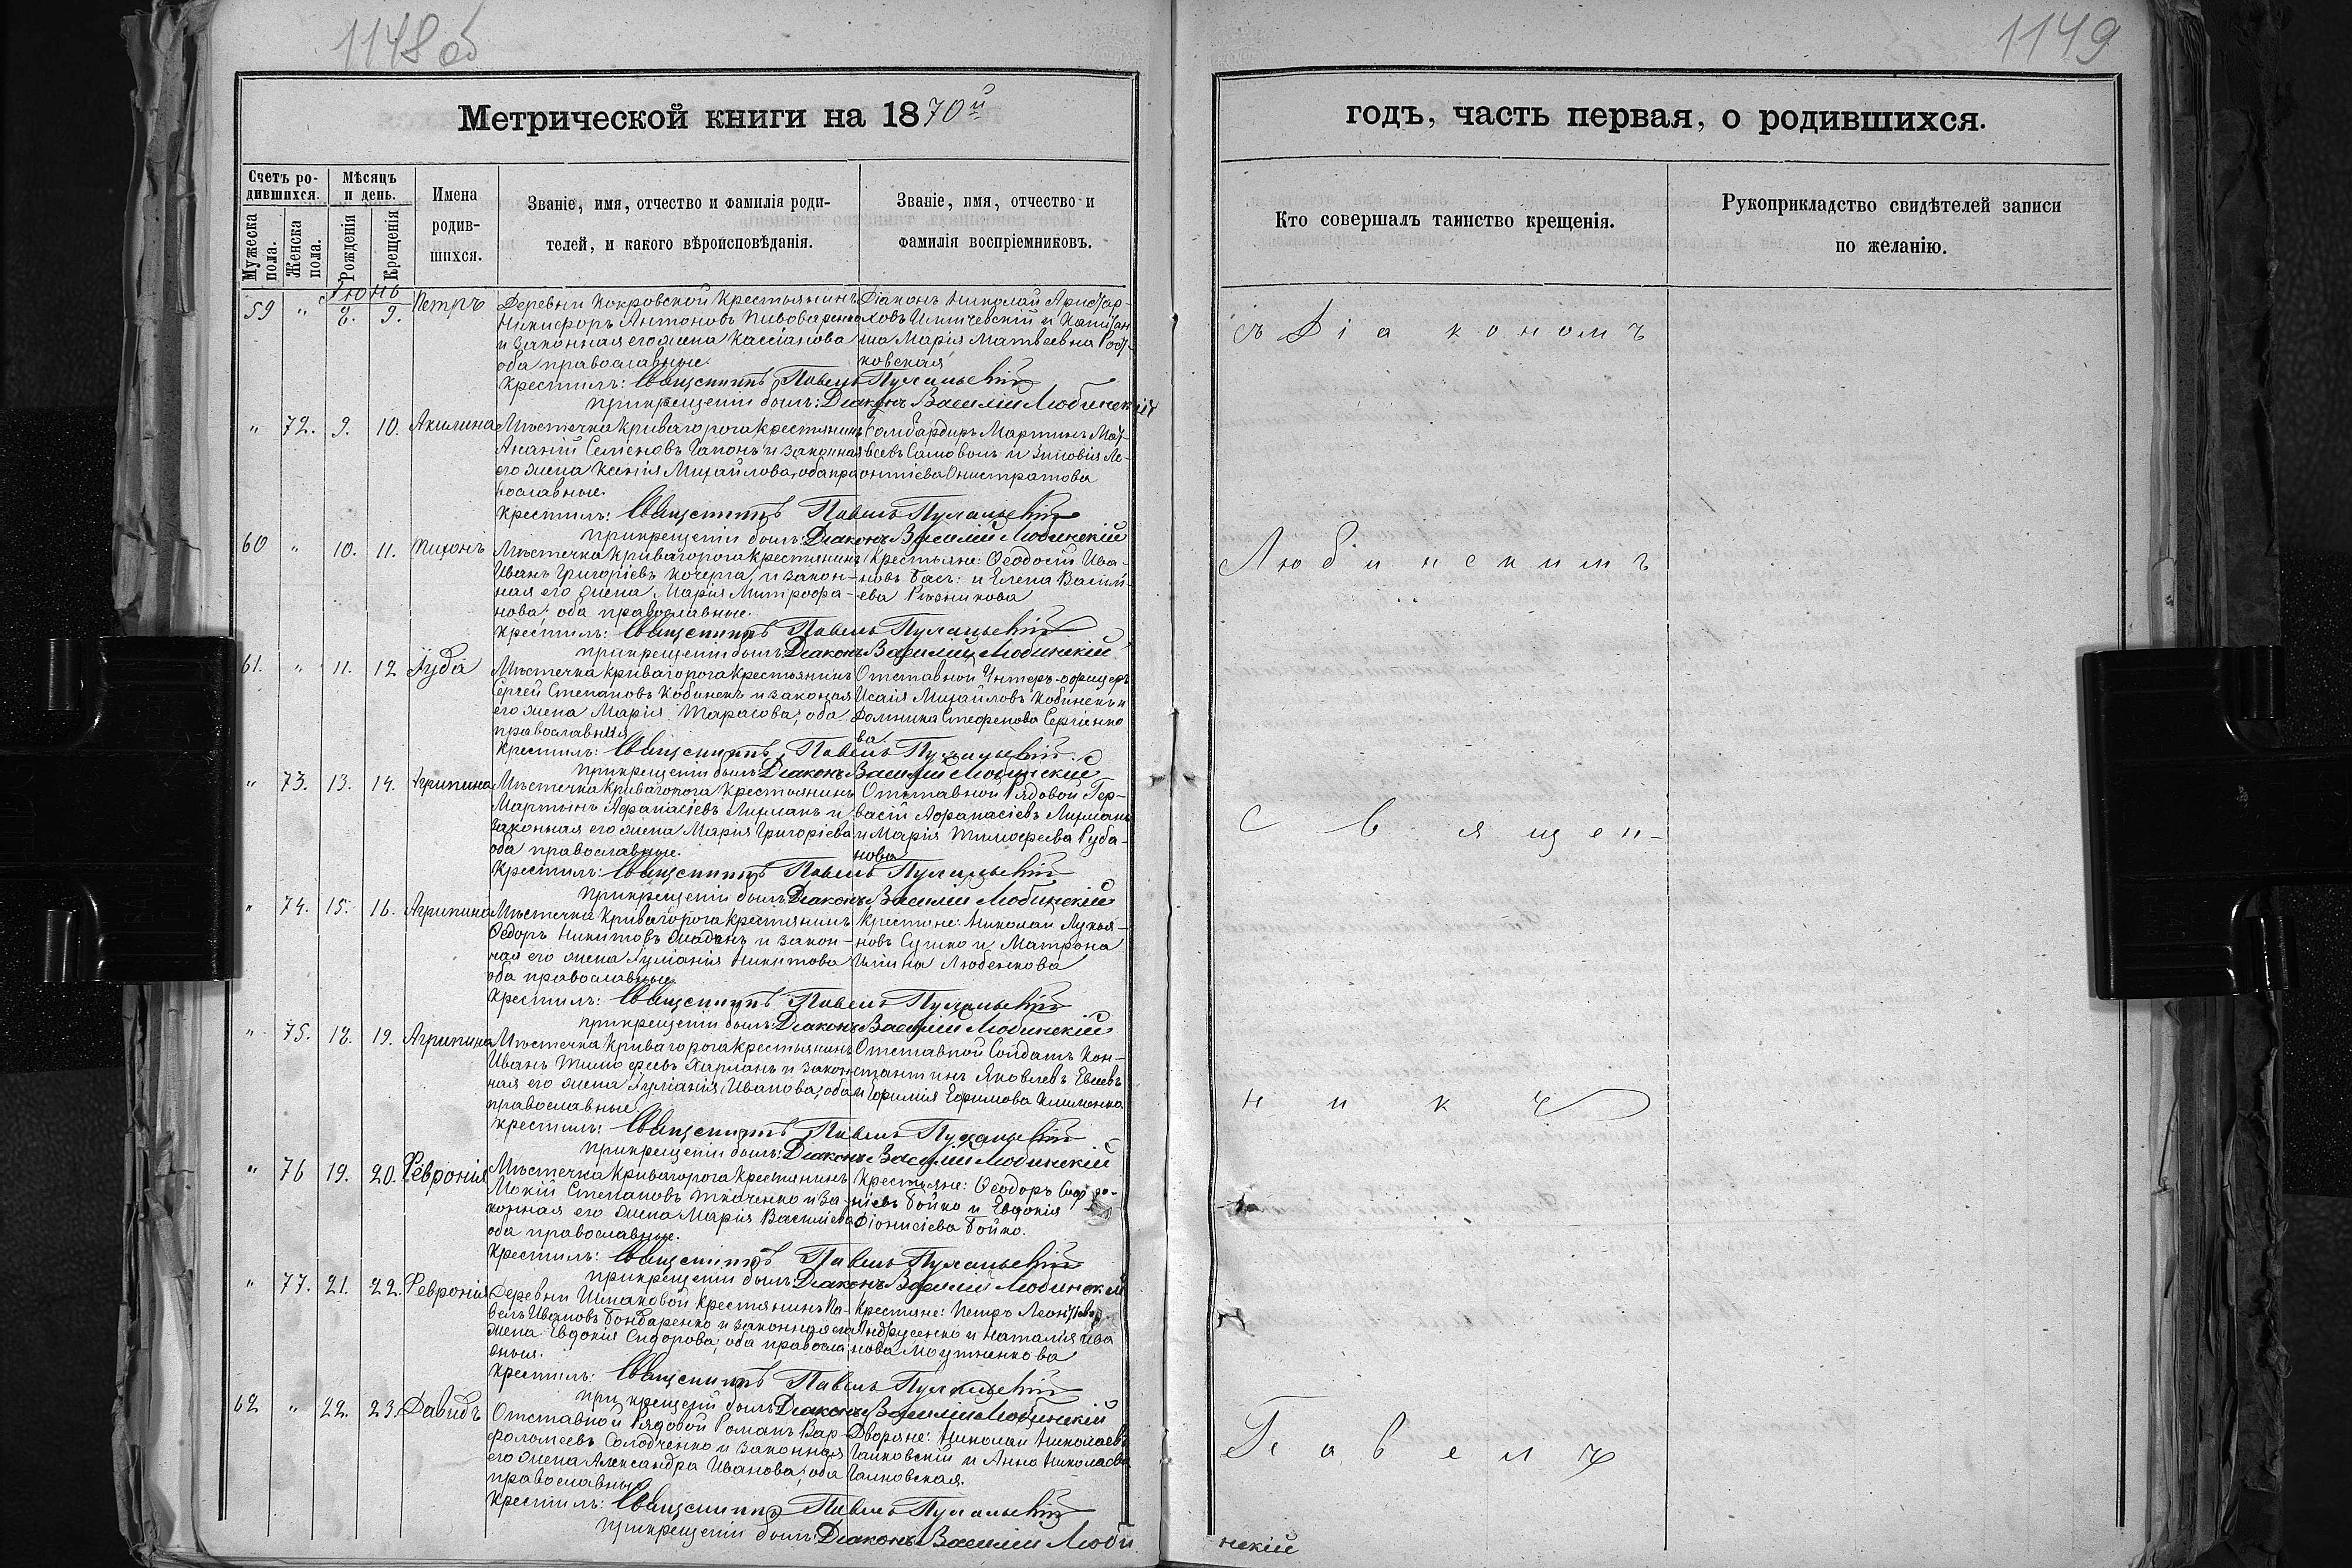 1148 об
Метрической книги на 1870й
Счетъ родившихся.
Мѣсяцъ и день.
Мужеска пола.
Женска пола.
Рожденія
Крещенія
Имена родившихся.
Званіе, имя, отчество и фамилія родителей, и какого вѣроисповѣданія.
Званіе, имя, отчество и фамилія воспріемниковъ.
Іюнь
59 " 8. 9. Петръ
Деревни Покровской крестьянинъ
Никифоръ Антоновъ Пивоваренко
и законная его жена Кассіанова
оба православные.
Діаконъ Николай Аристар-
ховъ и Капитан
ша Марія Матвеевна
ковская
Крестилъ: Священникъ Павелъ
при крещеніи былъ: Діаконъ Василій Любинскій
" 72. 9. 10. Акилина
Мѣстечка Кривагорога крестьянинъ
Ананій Семеновъ Гапонъ и законная
его жена Ксенія Михайлова, оба пра
вославные.
Бомбардиръ Мартинъ Мат-
веевъ и Зиновія Ле-
онтіева
Крестилъ: Священникъ Павелъ
при крещеніи былъ: Діаконъ Василій Любинскій
60 " 10. 11. Тихонъ
Мѣстечка Кривагорога крестьянинъ
Иванъ Григоріевъ Кочерга, и закон-
ная его жена Марія Митрофа-
нова; оба православные.
Крестьяне: Ѳеодосій Ива-
новъ Басъ: и Елена Васил
ева Резникова
Крестилъ: Священникъ Павелъ
при крещеніи былъ: Діаконъ Василій Любинскій
61. " 11. 12 Іуда
Мѣстечка Кривагорога крестьянинъ
Сергей Степановъ Кобинекъ и законая
его жена Марія Тарасова; оба
православныя
Отставной Унтеръ-офицеръ
Исаія Михайловъ Кобинекъ и
Домника Стефенова Сергіенко
ва.
Крестилъ: Священникъ Павелъ
при крещеніи былъ Діаконъ Василій Любинскій
" 73. 13. 14. Агрипина
Мѣстечка Кривагорога Крестьянинъ
Мартынъ Афанасіевъ Лирманъ и
законная его жена Марія Григоріева
оба православные.
Отставной Рядовой Гер-
васій Афанасіевъ Лирманъ
и Марія Тимофеева Руба-
нова
Крестилъ: Священникъ Павелъ
при крещеніи былъ Діаконъ Василій Любинскій
" 74. 15. 16. Агрипина
Мѣстечка Кривагорога крестьянинъ
Ѳедоръ Никитовъ и закон-
ная его жена Іуліанія Никитова
оба православные
Крестяне: Николай Лукья-
новъ Сушко и Матрона
Ильина Любенкова
Крестилъ: Священникъ Павелъ
при крещеніи былъ: Діаконъ Василій Любинскій
" 75. 18. 19. Агрипина
Мѣстечка Кривагорога крестьянинъ
Иванъ Тимофеевъ Харманъ и закон
ная его жена Іуліанія Иванова; оба
православные
Отставной Солдатъ Кон-
стантинъ Яковлевъ Евсевъ
и Ефимія Ефимова Клименко.
Крестилъ: Священникъ Павелъ
при крещеніи былъ: Діаконъ Василій Любинскій
" 76 19. 20. Февронія
Мѣстечка Кривагорога Крестянинъ
Мокій Степановъ Ткаченко и за-
конная его жена Марія Василіева
оба православные.
Крестьяне: Ѳеодоръ Софро-
ніевъ Бойко и Евдокія
Діонисіева Бойко.
Крестилъ: Священникъ Павелъ
при крещеніи былъ: Діаконъ Василій Любинскій
" 77. 21. 22. Февронія
Деревни Шмаковой Крестянинъ Па-
велъ Ивановъ Бондаренко и законная его
жена Евдокія Сидорова, оба правосла
вныя.
Крестяне: Петръ Леонтіевъ
Андрусенко и Наталія Ива
нова
Крестилъ: Священникъ Павелъ
при крещеніи былъ Діаконъ Василій Любинскій
62 " 22. 23. Давидъ
Отставной Рядовой Романъ Вар-
фоломеевъ Солодченко и законная
его жена Александра Иванова, оба
православные
Дворяне: Николай Николаевъ
Галковскій и Анна Николаева
Галковская.
Крестилъ: Священникъ Павелъ
при крещеніи былъ: Діаконъ Василій Люби
1149
годъ, часть первая, о родившихся.
Кто совершалъ таинство крещенія.
Рукоприкладство свидѣтелей записи по желанію.
съ Діакономъ
Любинскимъ
Священ-
никъ
Павелъ
нскій